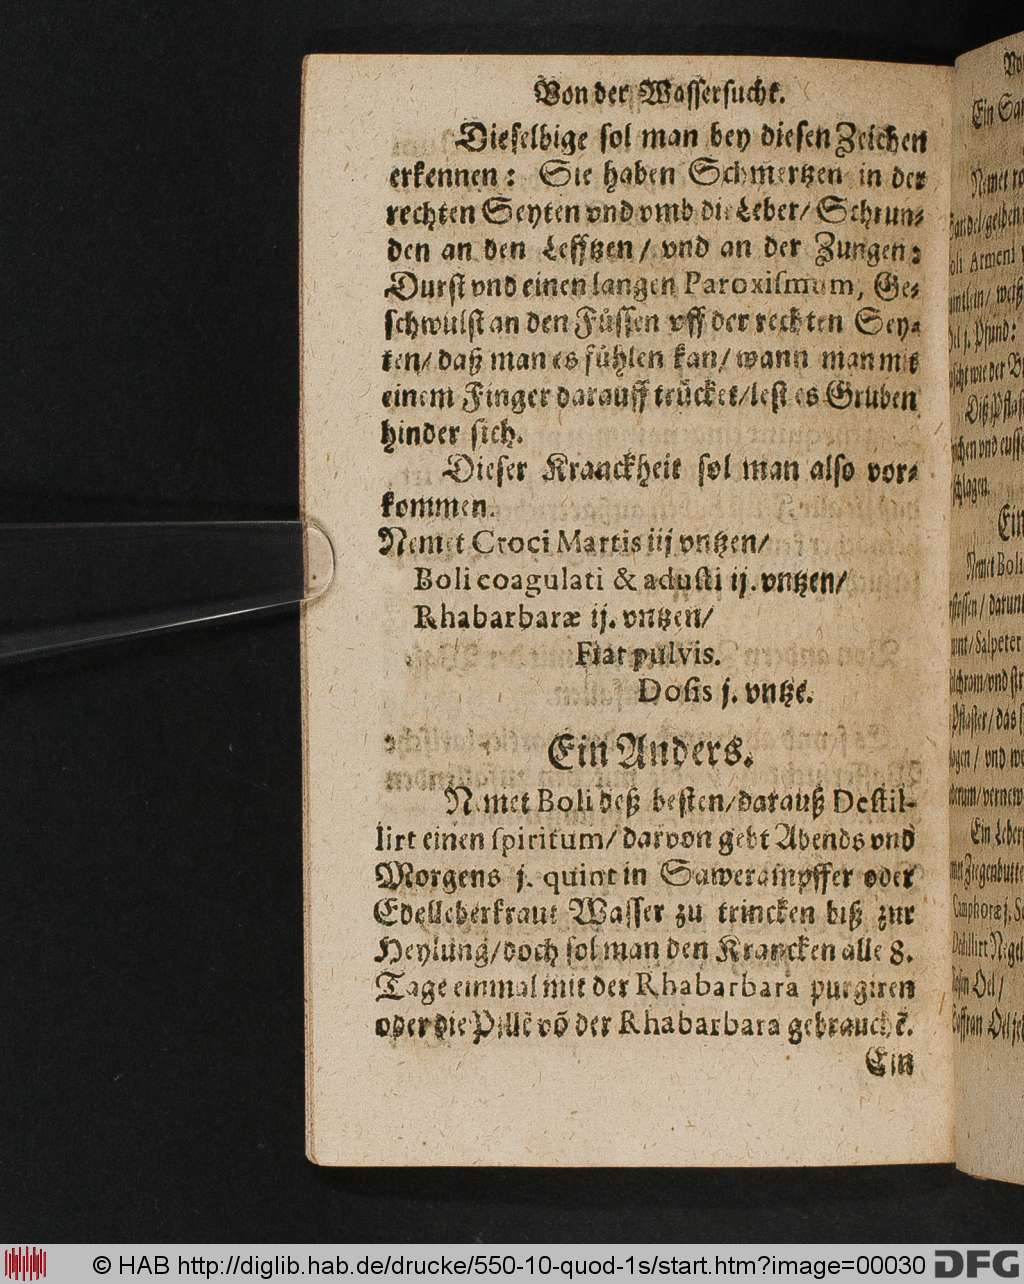 Von der Wassersucht.
Dieselbige sol man bey diesen Zeichen
erkennen: Sie haben Schmertzen in der
rechten Seyten vnd vmb die Leber/ Schrun-
den an den Lefftzen/ vnd an der Zungen:
Durst vnd einen langen Paroxismum, Ge-
schwulst an den Füssen vff der rechten Sey-
ten/ daß man es fühlen kan/ wann man mit
einem Finger darauff trücket/ lest es Gruben
hinder sich.
Dieser Kranckheit sol man also vor-
kommen.
Nemet Croci Martis iij vntzen/
Boli coagulati & adusti ij. vntzen/
Rhabarbaræ ij. vntzen/
Fiat pulvis.
Dosis j. vntzé.
Ein Anders.
Nemet Boli deß besten/ darauß Destil-
lirt einen spiritum/ darvon gebt Abends vnd
Morgens j. quint in Sawerampffer oder
Edelleberkraut Wasser zu trincken biß zur
Heylung/ doch sol man den Krancken alle 8.
Tage einmal mit der Rhabarbara purgiren
oder die Pillẽ võ der Rhabarbara gebrauchẽ.
Ein
Ein
Nemet Boli
© HAB http://diglib.hab.de/drucke/550-10-quod-1s/start.htm?image=00030
DFG